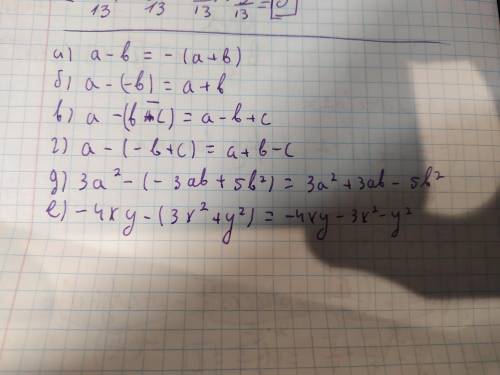 13 13 13 13 =
а) a-b = -(a+b)
б) a-(-b) = a+b
в) a-(b-c) = a-b+c
г) a-(-b+c) = a+b-c
д) 3a²-(-3ab+5b²) = 3a²+3ab-5b²
е) -4xy-(3x²+y²) = -4xy-3x²-y²